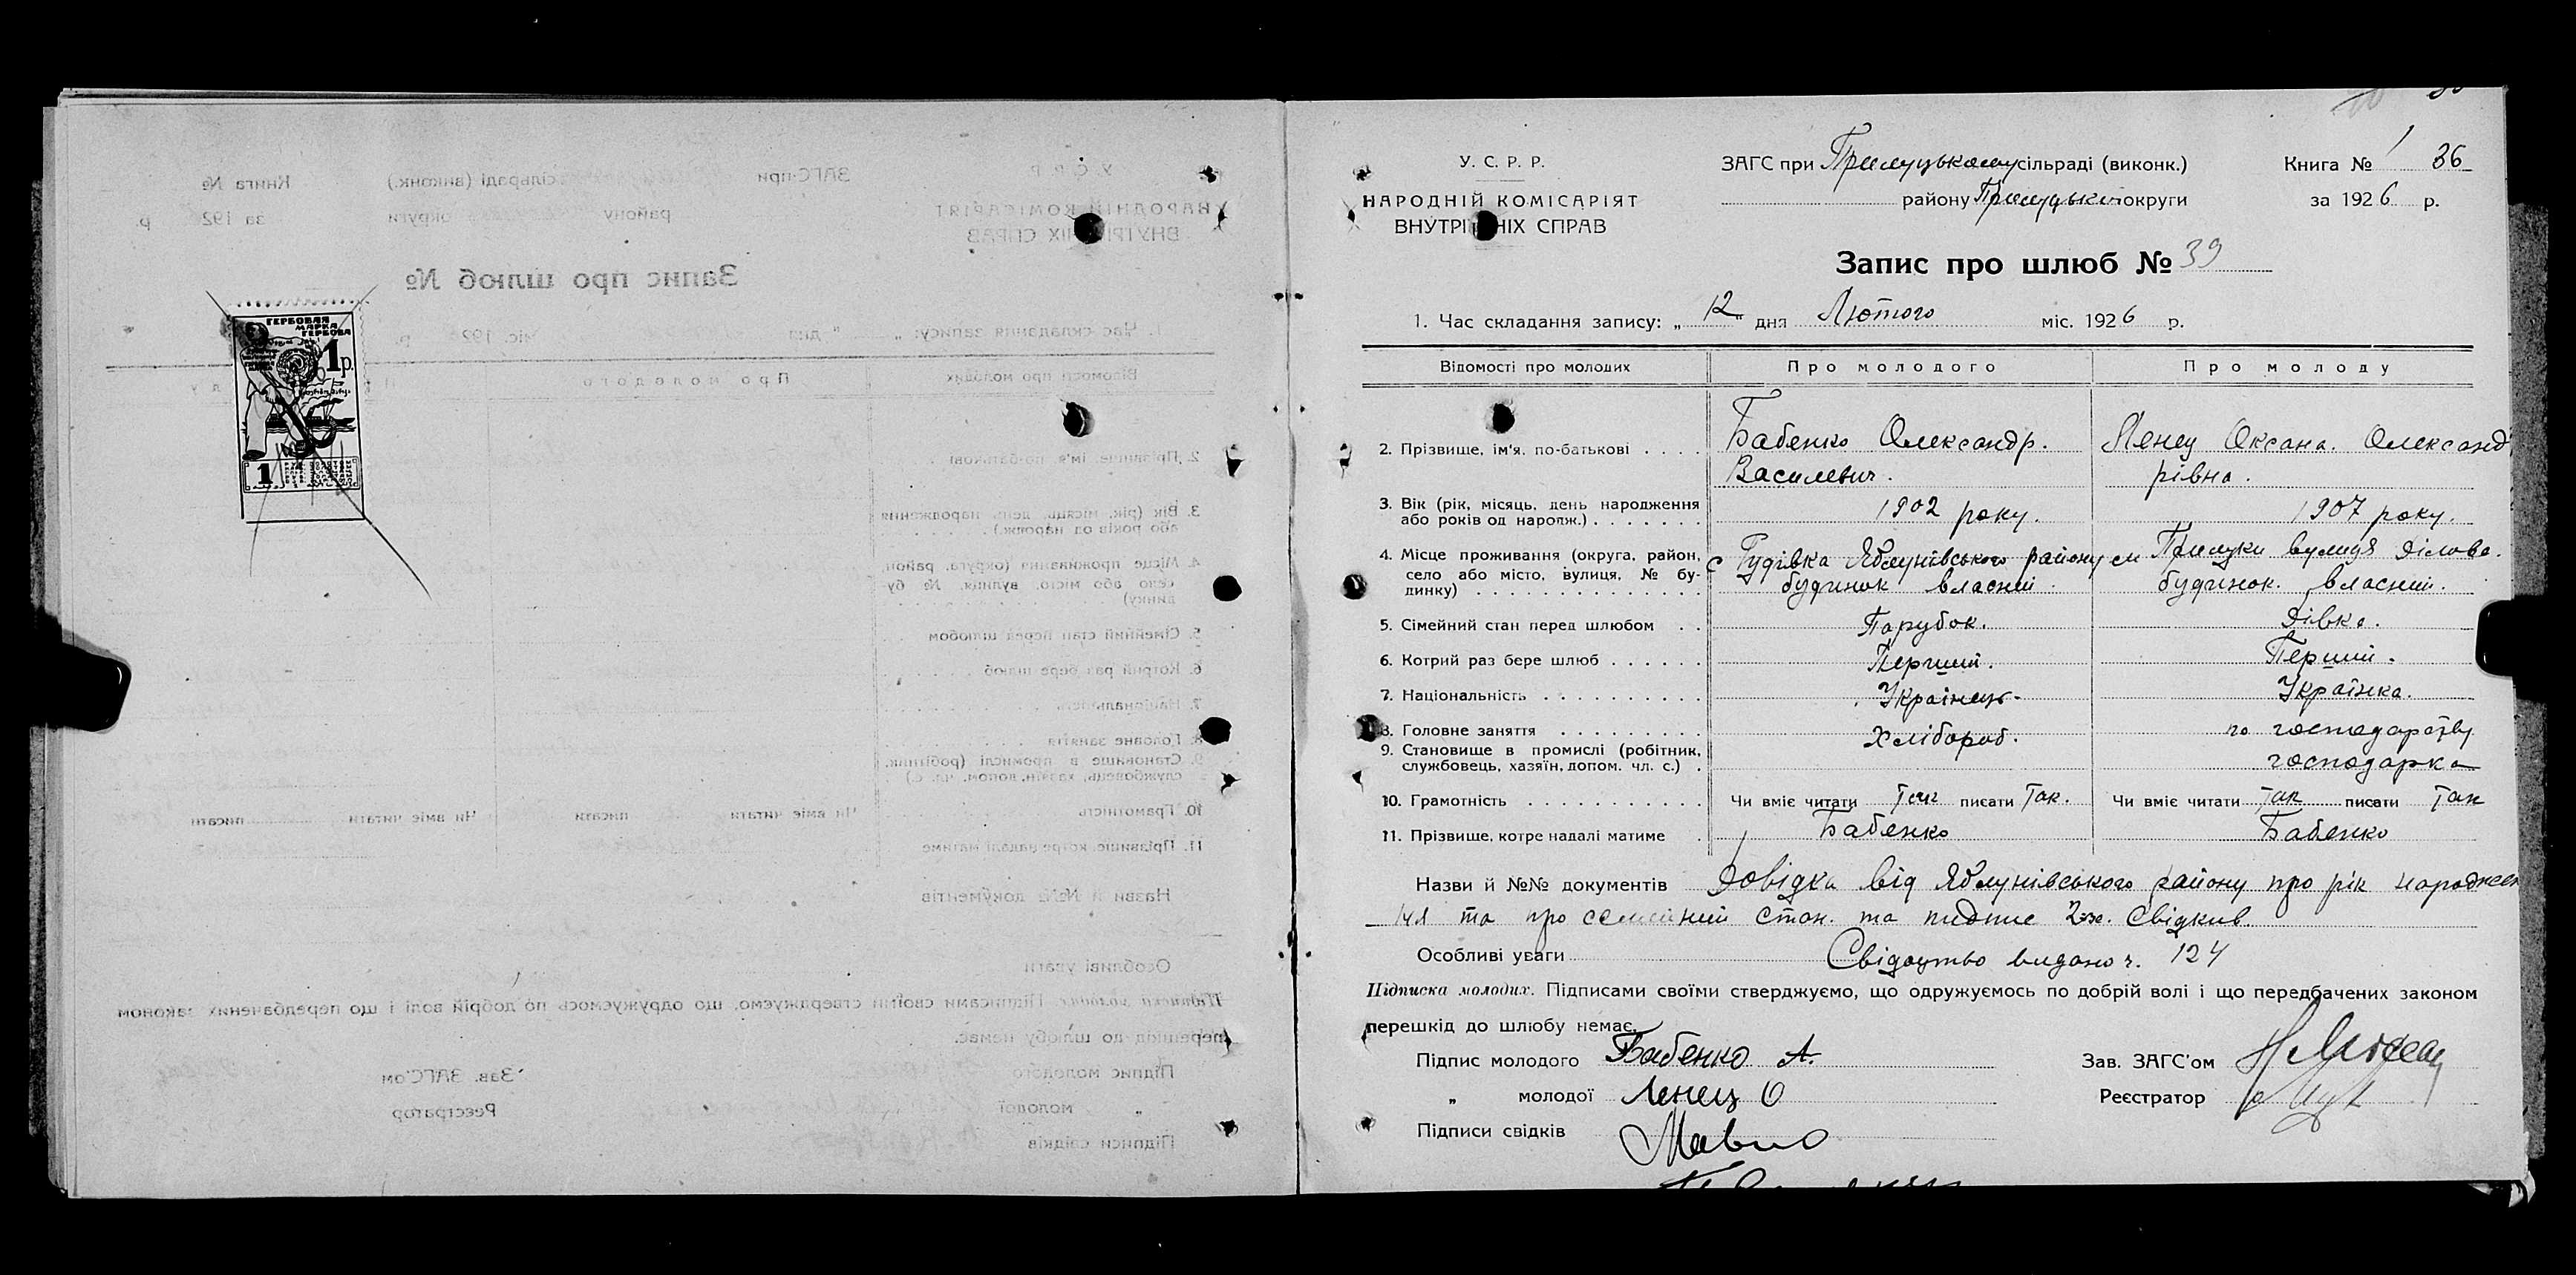 ГЕРБОВАЯ
МАРКА
ГЕРБОВА
1р.
1
У. С. Р. Р.
НАРОДНІЙ КОМІСАРІЯТ
ВНУТРІШНІХ СПРАВ
ЗАГС при Прилуцькому сільраді (виконк.)
району Прилуцької округи
Книга № 1 36
за 1926 р.
Запис про шлюб № 39
1. Час складання запису: „12" дня Лютого міс. 1926 р.
Відомості про молодих Про молодого Про молоду
2. Прізвище, ім'я, по-батькові . . . . Бабенко Олександр. Ленец Оксана. Олександ
Василевич. рівна.
3. Вік (рік, місяць, день народження
або років од народж.) . . . . . . . 1902 року. 1907 року.
4. Місце проживання (округа, район, с Гудівка Яблунівського району м Прилуки вулиця Ділова.
село або місто, вулиця, № бу- будинок власний. будинок. власний.
динку) . . . . . . . . . . . . . .
5. Сімейний стан перед шлюбом . . Парубок. Дівка.
6. Котрий раз бере шлюб . . . . . . Перший. Перший.
7. Національність . . . . . . . . . . Українець. Українка.
8. Головне заняття . . . . . . . . . Хлібороб. по господарству
9. Становище в промислі (робітник,
службовець, хазяїн, допом. чл. с.) . господарка
10. Грамотність . . . . . . . . . . . Чи вміє читати Так писати Так. Чи вміє читати Так писати Так
11. Прізвище, котре надалі матиме . Бабенко Бабенко
Назви й №№ документів Довідка від Яблунівського району про рік народжен
ня та про семейний стан. та підпис 2-х. свідків.
Особливі уваги Свідоцтво видано ч. 124
Підписка молодих. Підписами своїми стверджуємо, що одружуємось по добрій волі і що передбачених законом
перешкід до шлюбу немає.
Підпис молодого Бабенко А. Зав. ЗАГС'ом
„ молодої Ленец О Реєстратор
Підписи свідків